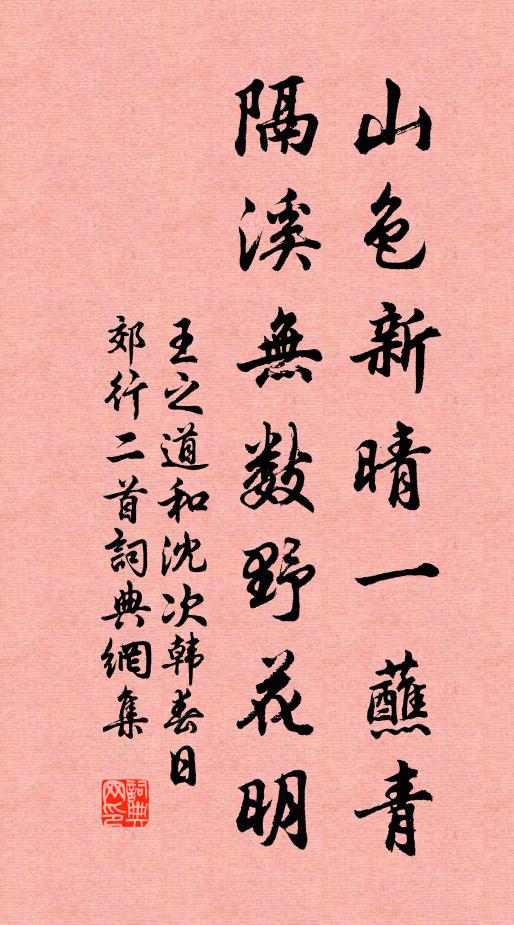 山色新晴一蘸青
隔溪無數野花明
王之道和沈次韩春日
郊行二首詞典網集
詞典
网印